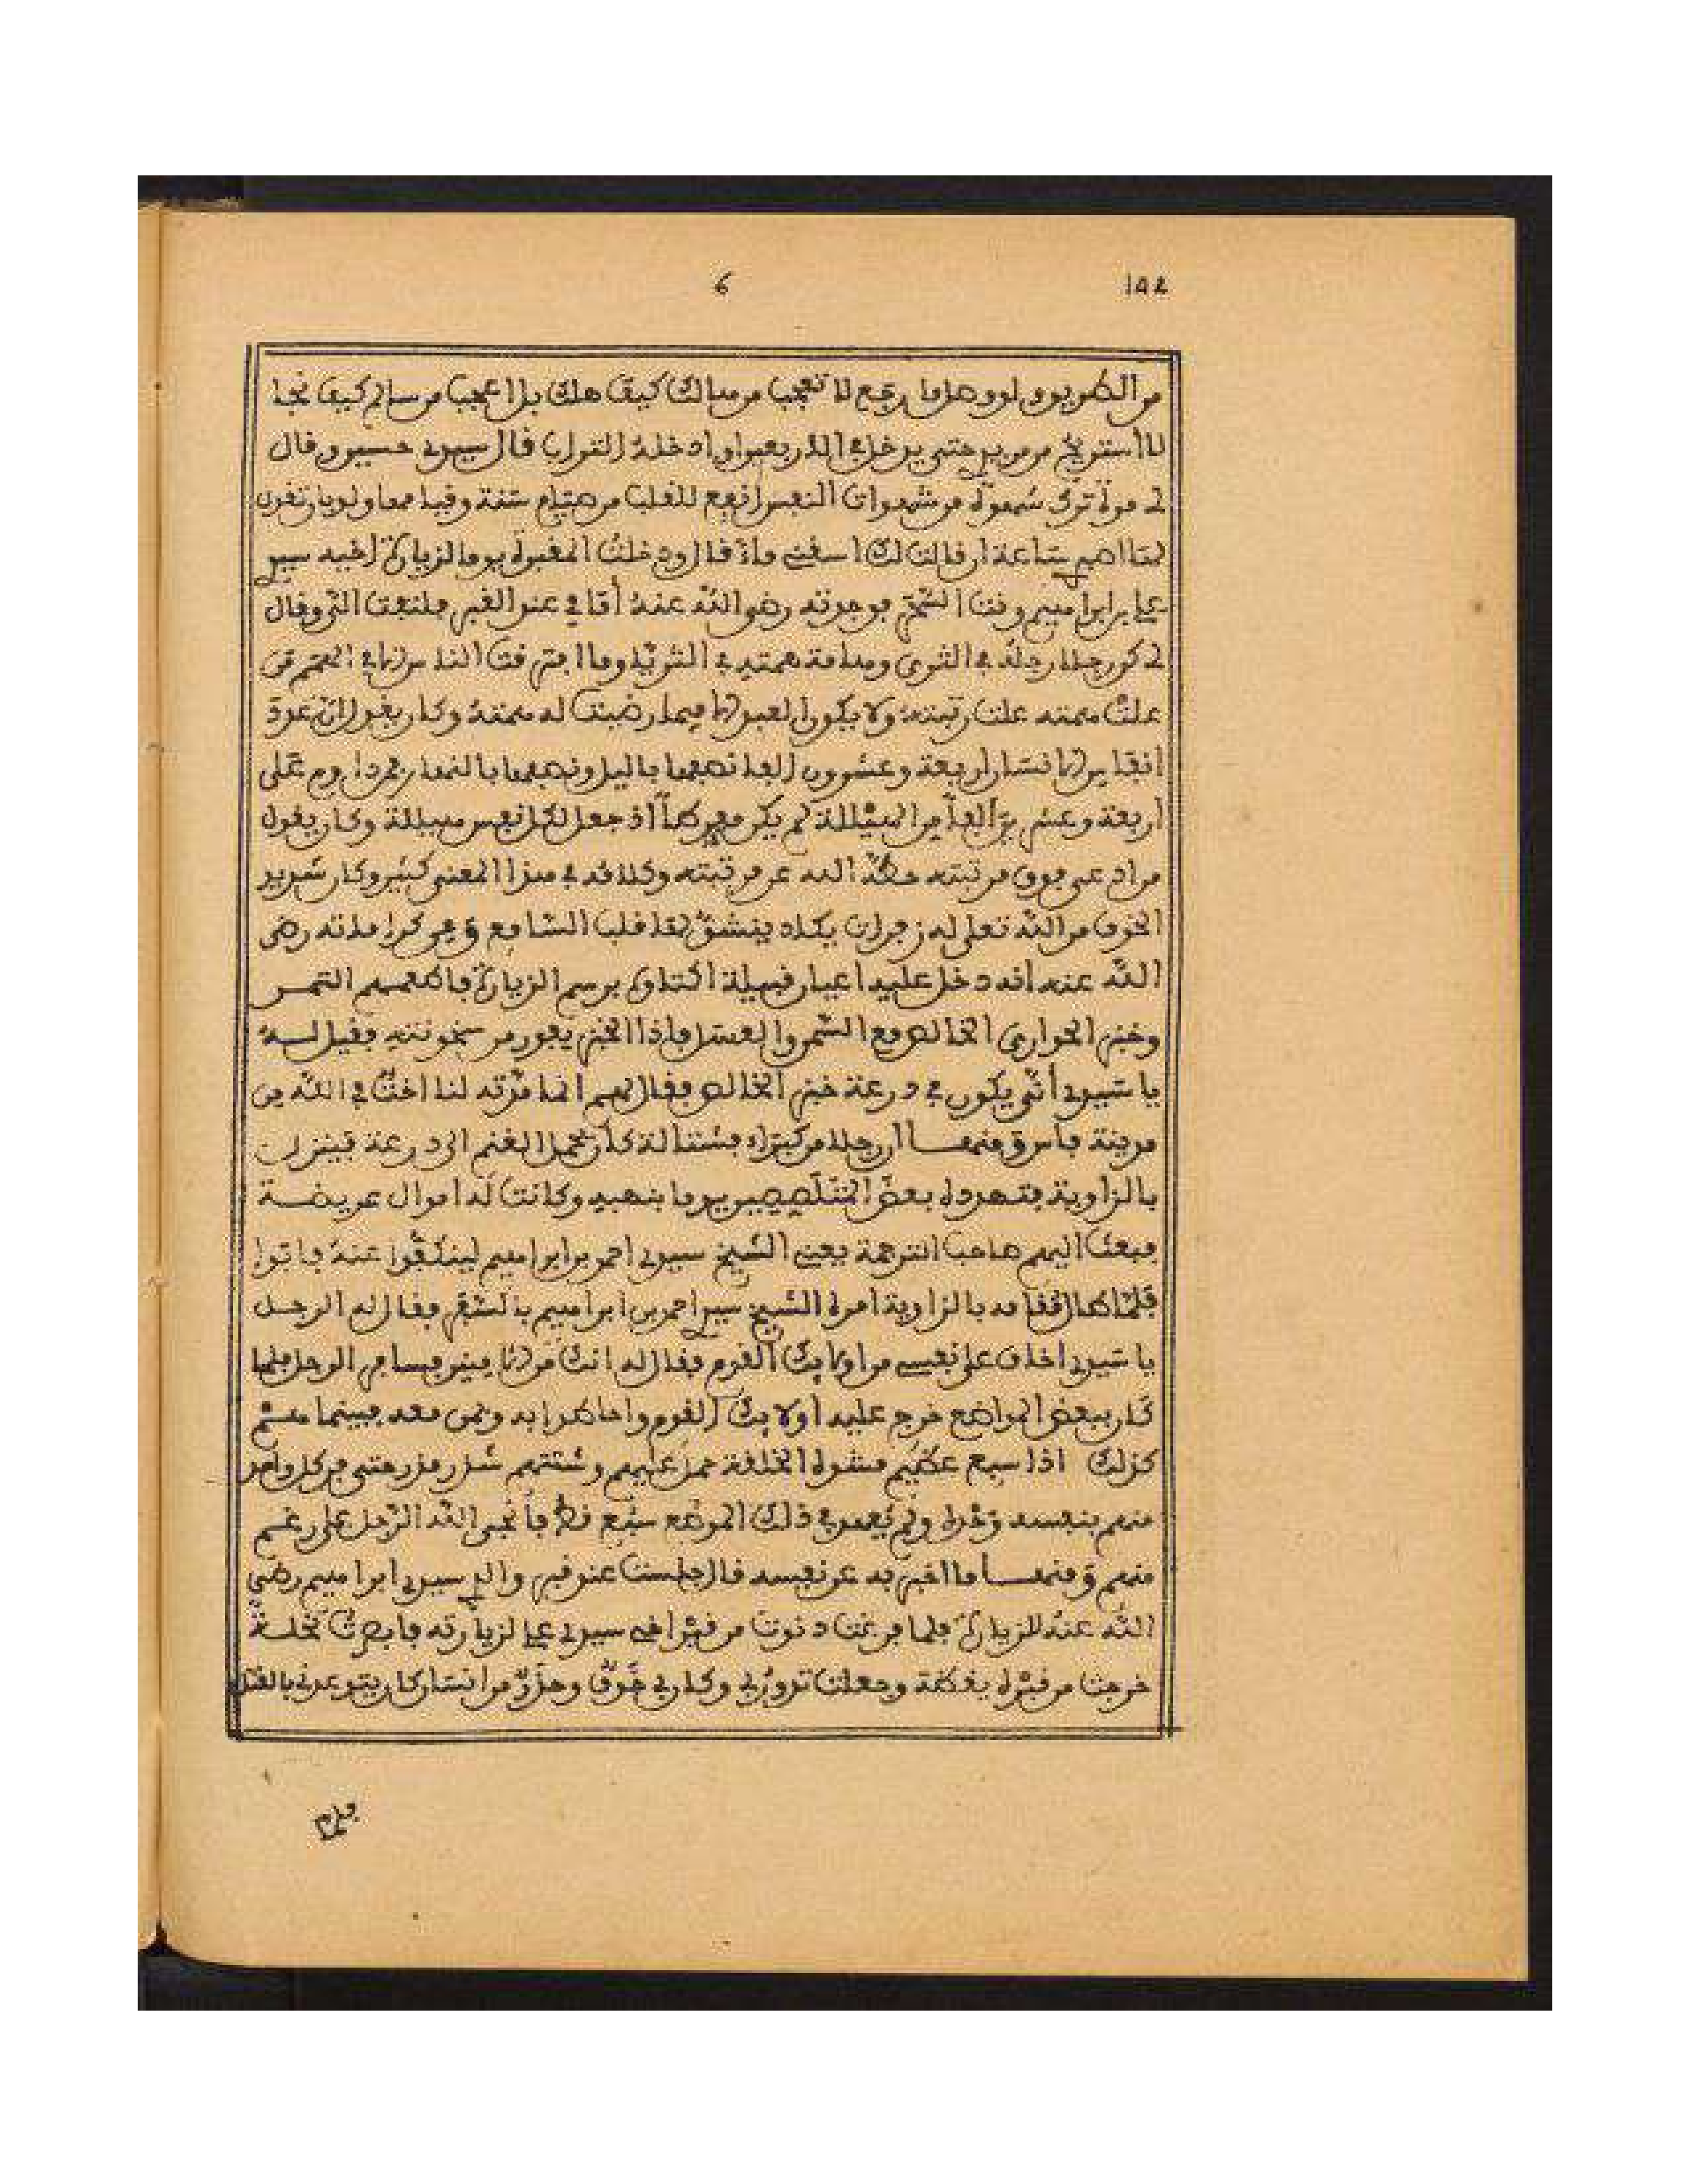 6
من الطريق ولو وصلوا ما رجع لا تعجب من هالك كيف هلك بل اعجب من سالم كيف نجا
لا استريح من مريد حتى يدخل في الاربعين او ادخله التراب قال سيدي حسين وقال
لي مرة ترك شهوة من شهوات النفس انفع للقلب من صيام سنة وقيامها ولو بان تقول
لها اصبري ساعة ان قالت لك اسقني ماء قال ودخلت المقبرة يوما لزيارة اخيه سيدي
علي بن ابراهيم وقت الضحى فوجدته رضي الله عنه قاعدا عند القبر فالتفت الي وقال
لي كن رجلا رجله في الثرى وهامة همته في الثريا وما افترقت الناس الا في الهمم فمن
علت همته علت رتبته ولا يكون العبد الا فيما رضيت له همته وكان يقول ان عدة
انفاس الانسان اربعة وعشرون الفا نصفها بالليل ونصفها بالنهار فمن داوم على
اربعة وعشرين الفا من الهيللة لم يكن مفرطا اذ جعل لكل نفس هيللة وكان يقول
من ادعى فوق مرتبته حطه الله عن مرتبته وكلامه في هذا المعنى كثير وكان شديد
الخوف من الله تعلى له زفرات يكاد ينشق لها قلب السامع ومن كراماته رضي
الله عنه انه دخل عليه اعيان قبيلة اكتاوة برسم الزيارة فاطعمهم التمر
وخبز الحواري الخالص مع السمن والعسل فاذا الخبز يفور من سخونته فقيل له
يا سيدي أنى يكون في درعة خبز الخالص فقال لهم انما مدته لنا اخت في الله من
مدينة فاس ومنهـا ان رجلا من كبراء مشتالة كان يحمل الغنم الى درعة فينزل
بالزاوية فتهدده بعض المتلصصين يوما بنهبه وكانت له اموال عريضة
فبعث اليهم صاحب الترجمة يعني الشيخ سيدي احمد بن ابراهيم لينكفوا عنه فابوا
فلما طال مقامه بالزاوية امره الشيخ سيدي احمد بن ابراهيم بالسفر فقال له الرجل
يا سيدي اخاف على نفسي من اولايك القوم فقال له انت من الامنين فسافر الرجل فلما
كان ببعض المواضع خرج عليه اولايك القوم واحاطوا به وبمن معه فبينما هم
كذلك اذا سبع عظيم مشوه الخلقة حمل عليهم وشتتهم شذر مذر حتى فر كل واحد
منهم بنفسه وحده ولم يعهد في ذلك الموضع سبع قط فانجى الله الرجل على رغم
منهم ومنهـا ما اخبر به عن نفسه قال جلست عند قبر والدي سيدي ابراهيم رضي
الله عنه للزيارة فلما فرغت دنوت من قبر اخي سيدي علي لزيارته فابصرت نحلة
خرجت من قبره يغطة وجعلت تدور بي وكان بي خوف وحذر من انسان كان يتوعدني بالقتل
فلم